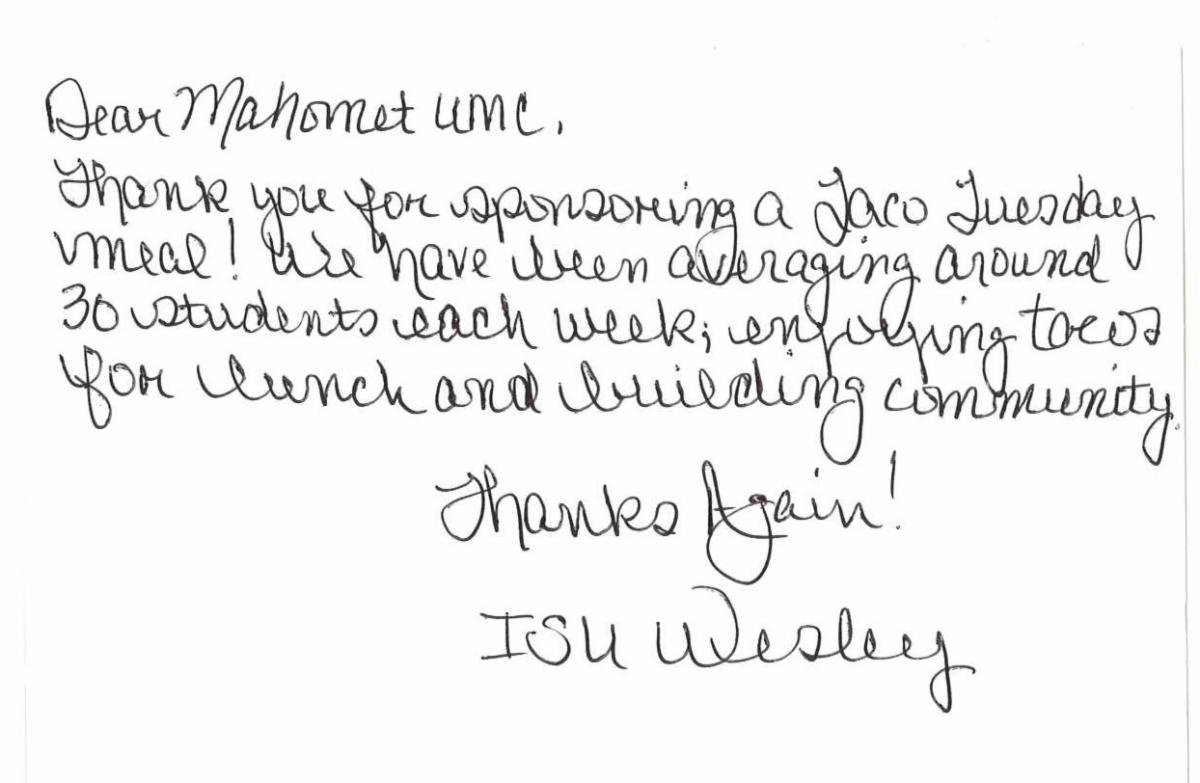 Dear Mahomet UMC,
Thank you for sponsoring a Taco Tuesday
meal! We have been averaging around
30 students each week; enjoying tacos
for lunch and building community.
Thanks Again!
ISU Wesley